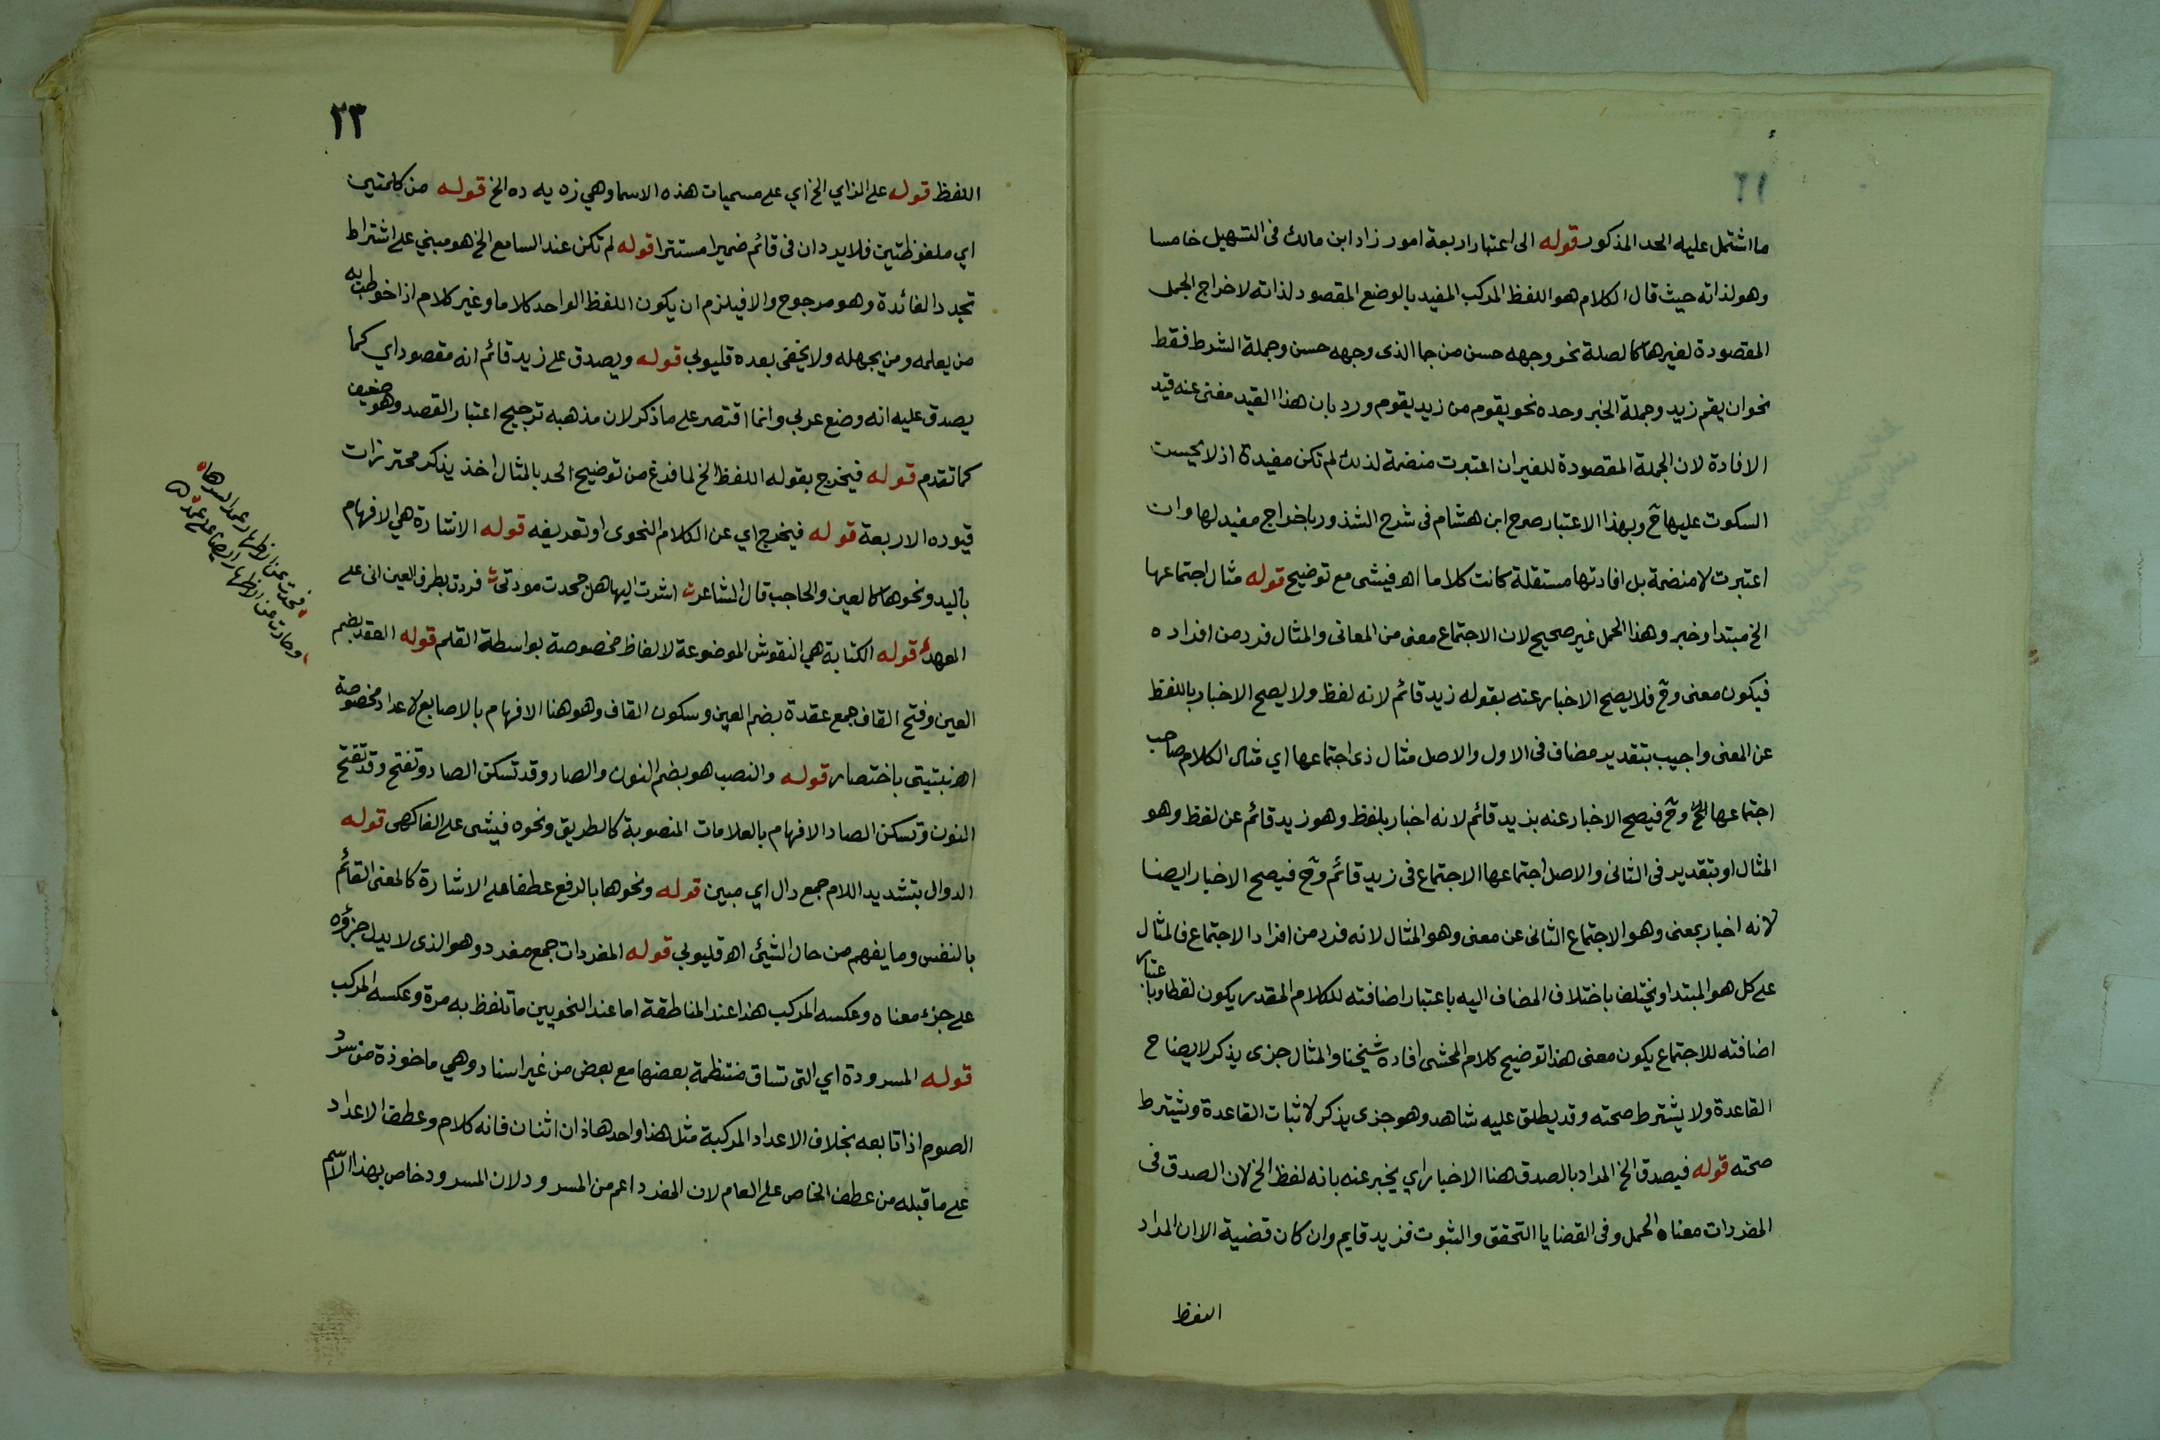 ما اشتمل عليه الحد المذكور قوله الى اعتبار اربعة امور زاد ابن مالك فى التسهيل خامسا
وهو لذاته حيث قال الكلام هو اللفظ المركب المفيد بالوضع المقصود لذاته لاخراج الجمل
المقصودة لغيرها كالصلة نحو وجهه حسن من جا الذى وجهه حسن وجملة الشرط فقط
نحو ان يقم زيد وجملة الخبر وحده نحو يقوم من زيد يقوم ورد بان هذا القيد مغنى عنه قيد
الافادة لان الجملة المقصودة للغير ان اعتبرت منضمة لذلك لم تكن مفيدة اذ لا يحسن
السكوت عليها ح وبهذا الاعتبار صرح ابن هشام فى شرح الشذور باخراج مفيد لها وان
اعتبرت لا منضمة بل افادتها مستقلة كانت كلاما اهـ فيشى مع توضيح قوله مثال اجتماعها
الخ مبتدا وخبر وهذا الحمل غير صحيح لان الاجتماع معنى من المعانى والمثال فرد من افراده
فيكون معنى وح فلا يصح الاخبار عنه بقوله زيد قائم لانه لفظ ولا يصح الاخبار باللفظ
عن المعنى واجيب بتقدير مضاف فى الاول والاصل مثال ذى اجتماعها اي مثال الكلام صاحب
اجتماعها الخ وح فيصح الاخبار عنه بزيد قائم لانه اخبار بلفظ وهو زيد قائم عن لفظ وهو
المثال او بتقدير فى الثانى والاصل اجتماعها الاجتماع فى زيد قائم وح فيصح الاخبار ايضا
لانه اخبار بمعنى وهو الاجتماع الثانى عن معنى وهو المثال لانه فرد من افراد الاجتماع فالمثال
على كل هو المبتدا ويختلف باختلاف المضاف اليه باعتبار اضافته للكلام المقدر يكون لفظا وباعتبار
اضافته للاجتماع يكون معنى هذا توضيح كلام المحشى افاده شيخنا والمثال جزى يذكر لايضاح
القاعدة ولا يشترط صحته وقد يطلق عليه شاهد وهو جزى يذكر لاثبات القاعدة ويشترط
صحته قوله فيصدق الخ المراد بالصدق هنا الاخبار اي يخبر عنه بانه لفظ الخ لان الصدق فى
المفردات معناه الحمل وفى القضايا التحقق والثبوت فزيد قايم وان كان قضية الا ان المراد
اللفظ
٢٣
اللفظ قوله على الزاي الخ اي على مسميات هذه الاسما وهي زه يه ده الخ قوله من كلمتين
اي ملفوظتين فلا يرد ان فى قائم ضميرا مستترا قوله لم تكن عند السامع الخ هو مبني على اشتراط
تجدد الفائدة وهو مرجوح والا فيلزم ان يكون اللفظ الواحد كلاما وغير كلام اذا خوطب به
من يعلمه ومن يجهله ولا يخفى بعده قليوبي قوله ويصدق على زيد قائم انه مقصود اي كما
يصدق عليه انه وضع عربي وانما اقتصر على ما ذكر لان مذهبه ترجيح اعتبار القصد وهو ضعيف
كما تقدم قوله فيخرج بقوله اللفظ الخ لما فرغ من توضيح الحد بالمثال اخذ يذكر محترزات
قيوده الاربعة قوله فيخرج اي عن الكلام النحوى او تعريفه قوله الاشارة هي الافهام
باليد ونحوها كالعين والحاجب قال الشاعر اشرت اليها هل جحدت مودتى فردت بطرف العين انى على
العهد قوله الكتابة هي النقوش الموضوعة لالفاظ مخصوصة بواسطة القلم قوله العقد بضم
العين وفتح القاف جمع عقدة بضم العين وسكون القاف وهو هنا الافهام بالاصابع لاعداد مخصوصة
اهـ نبتيتى باختصار قوله والنصب هو بضم النون والصاد وقد تسكن الصاد وتفتح وقد تفتح
النون وتسكن الصاد الافهام بالعلامات المنصوبة كالطريق ونحوه فيشى على الفاكهى قوله
الدوال بتشديد اللام جمع دال اي مبين قوله ونحوها بالرفع عطفا على الاشارة كالمعنى القائم
بالنفس وما يفهم من حال الشيئ اهـ قليوبي قوله المفردات جمع مفرد وهو الذى لا يدل جزؤه
على جزء معناه وعكسه المركب هذا عند المناطقة اما عند النحويين ما تلفظ به مرة وعكسه المركب
قوله المسرودة اي التى تساق منتظمة بعضها مع بعض من غير اسناد وهي ماخوذة من سرد
الصوم اذا تابعه بخلاف الاعداد المركبة مثل هذا واحد هاذان اثنان فانه كلام وعطف الاعداد
على ما قبله من عطف الخاص على العام لان المفرد اعم من المسرود لان المسرود خاص بهذا الاسم